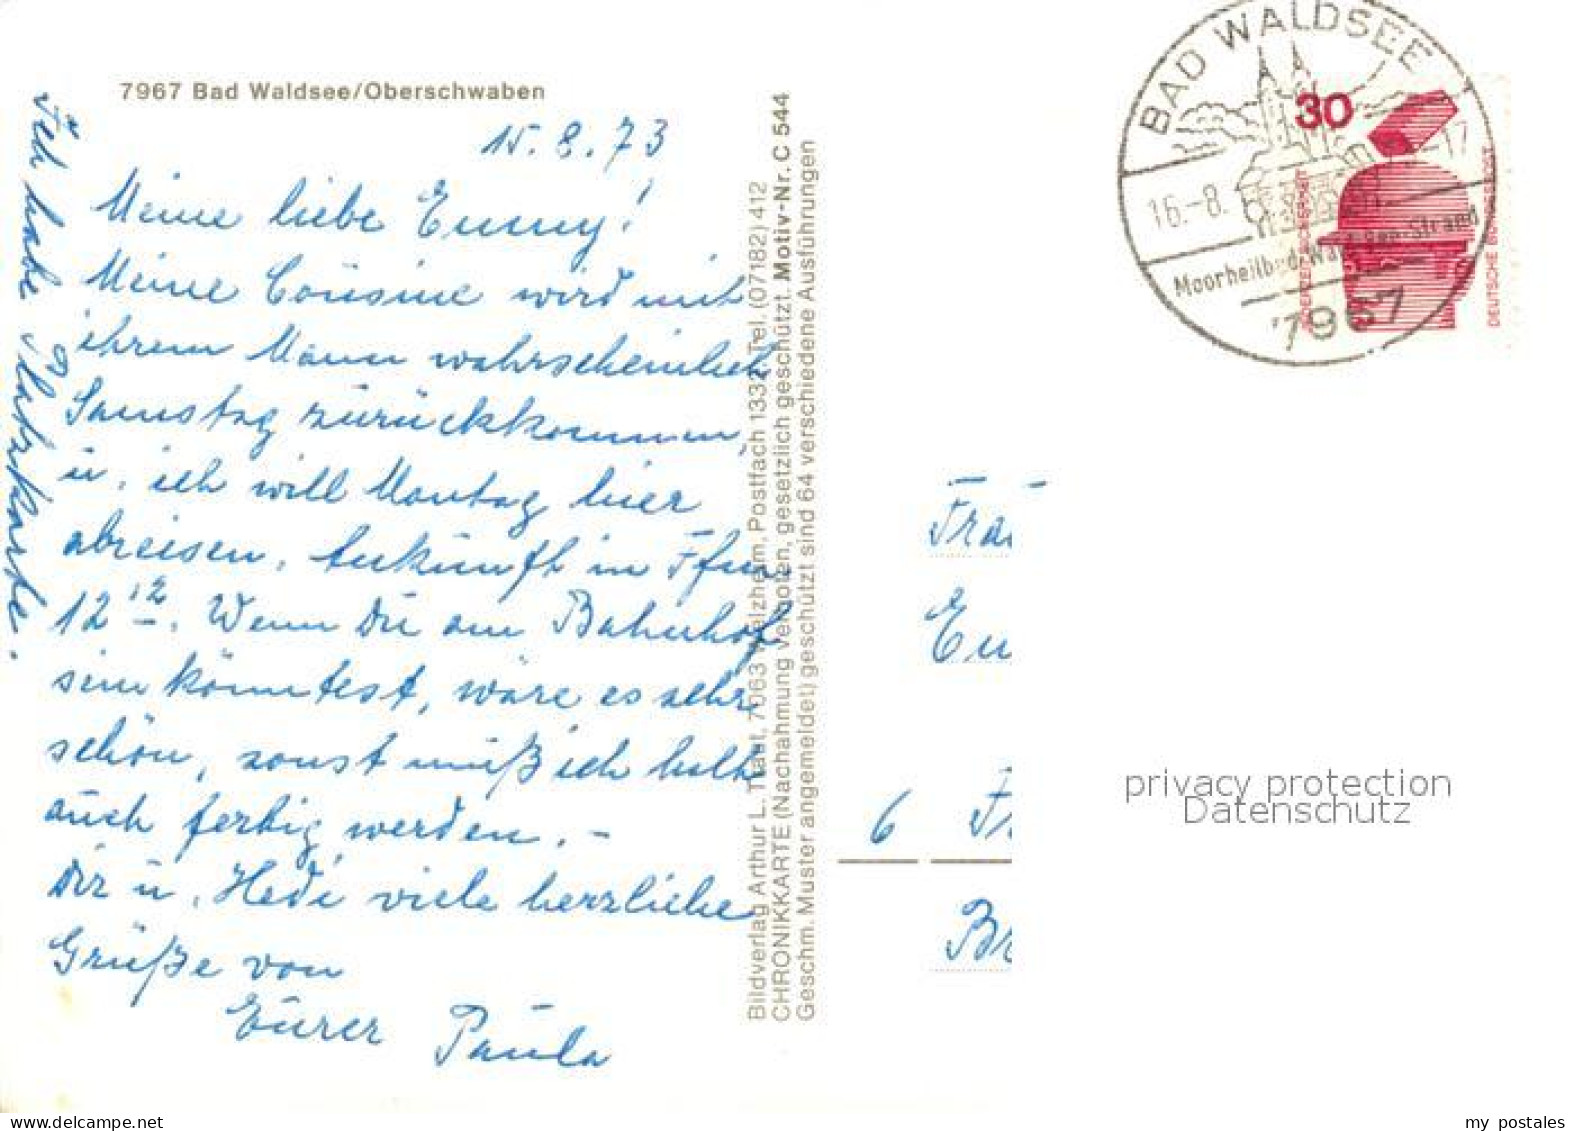 7967 Bad Waldsee/Oberschwaben
15.8.73
Meine liebe Enny!
Meine Cousine wird mit
ihrem Mann wahrscheinlich
Samstag zurückkommen,
u. ich will Montag hier
abreisen. Ankunft in Ffm
12 12. Wenn Du am Bahnhof
sein könntest, wäre es sehr
schön, sonst muß ich halt
auch fertig werden. –
Dir u. Hedi viele herzliche
Grüße von
Eurer Paula
Ich habe Platzkarte.
Bildverlag Arthur L. Traut, 7063 Welzheim, Postfach 1332, Tel. (07182) 412
CHRONIKKARTE (Nachahmung verboten, gesetzlich geschützt. Motiv-Nr. C 544
Geschm. Muster angemeldet) geschützt sind 64 verschiedene Ausführungen
BAD WALDSEE
16.-8.
-17
Moorheilbad
Strand
7967
30
DEUTSCHE BUNDESPOST
6 Fr
Br
privacy protection
Datenschutz
my postales
www.delcampe.net